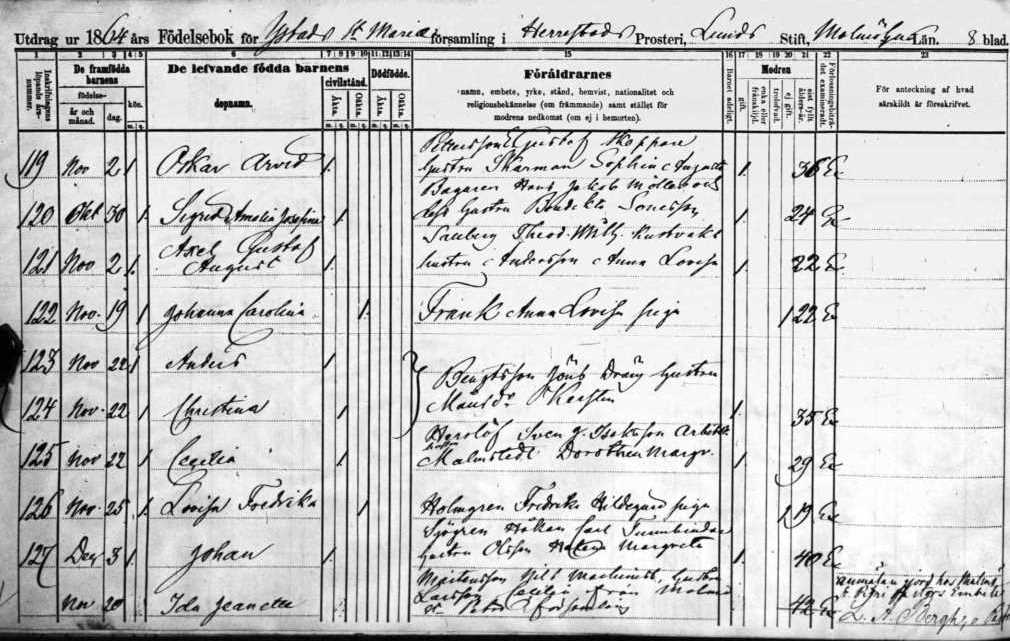 Utdrag ur 1864 års Födelsebok för Ystads St Mariæ församling i Herrestads Prosteri, Lunds Stift, Malmöhus Län. 8 blad.
1 2 3 4 5 6 7 8 9 10 11 12 13 14 15 16 17 18 19 20 21 22 23
Inskrifningens löpande årsnummer.
De framfödda barnens
födelse-
år och månad.
dag.
kön.
m. q.
De lefvande födda barnens
dopnamn.
civilstånd.
Äkta.
Oäkta.
m. q. m. q.
Dödfödde.
Äkta.
Oäkta.
m. q. m. q.
Föräldrarnes
namn, embete, yrke, stånd, hemvist, nationalitet och
religionsbekännelse (om främmande) samt stället för
modrens nedkomst (om ej i hemorten).
Barnet adeligt.
Modren
gift.
enka eller frånskild.
trolofvad.
ej gift.
sist fylda ålders-år.
Förlossningsbiträdet examineradt.
För anteckning af hvad
särskildt är föreskrifvet.
119 Nov 2 1 Oskar Arvid 1. Gustaf Skeppare
Hustru Sophia Augusta 1. 36 Ex
Bagaren Hans Jakob
120 Okt 30 1. Sigrid Amalia Josefina 1. Hustru 1. 24 Ex
Axel Gustaf Theod. Wilh.
121 Nov 2 1. August 1. hustru Andersson Anna Lovisa 1. 22 Ex
122 Nov. 19 1 Johanna Carolina 1. Frank Anna Lovisa piga 1 22 Ex
123 Nov 22 1 Anders 1 Bengtsson Jöns Dräng hustru
124 Nov. 22 1 Christina 1 Månsdr Kerstin 1. 35 Ex
Sven Arbetsk.
125 Nov 22 1. Cecilia 1. Malmstedt Dorothea Margr. 1. 29 Ex
126 Nov. 25 1. Lovisa Fredrika 1 Holmgren Fredrika Hildegard piga 1 19 Ex
Sjögren Håkan Carl Tunnbindare
127 Dec 3 1. Johan 1. Hustru Olsson Margreta 1. 40 Ex
Mårtensson Nils Maskinist, Hustru
Nov 20 Ida Jeanette Larsson Cecilia från Malmö 42 Ex
St Petri församling
anmälan gjord hos Malmö
St Petri